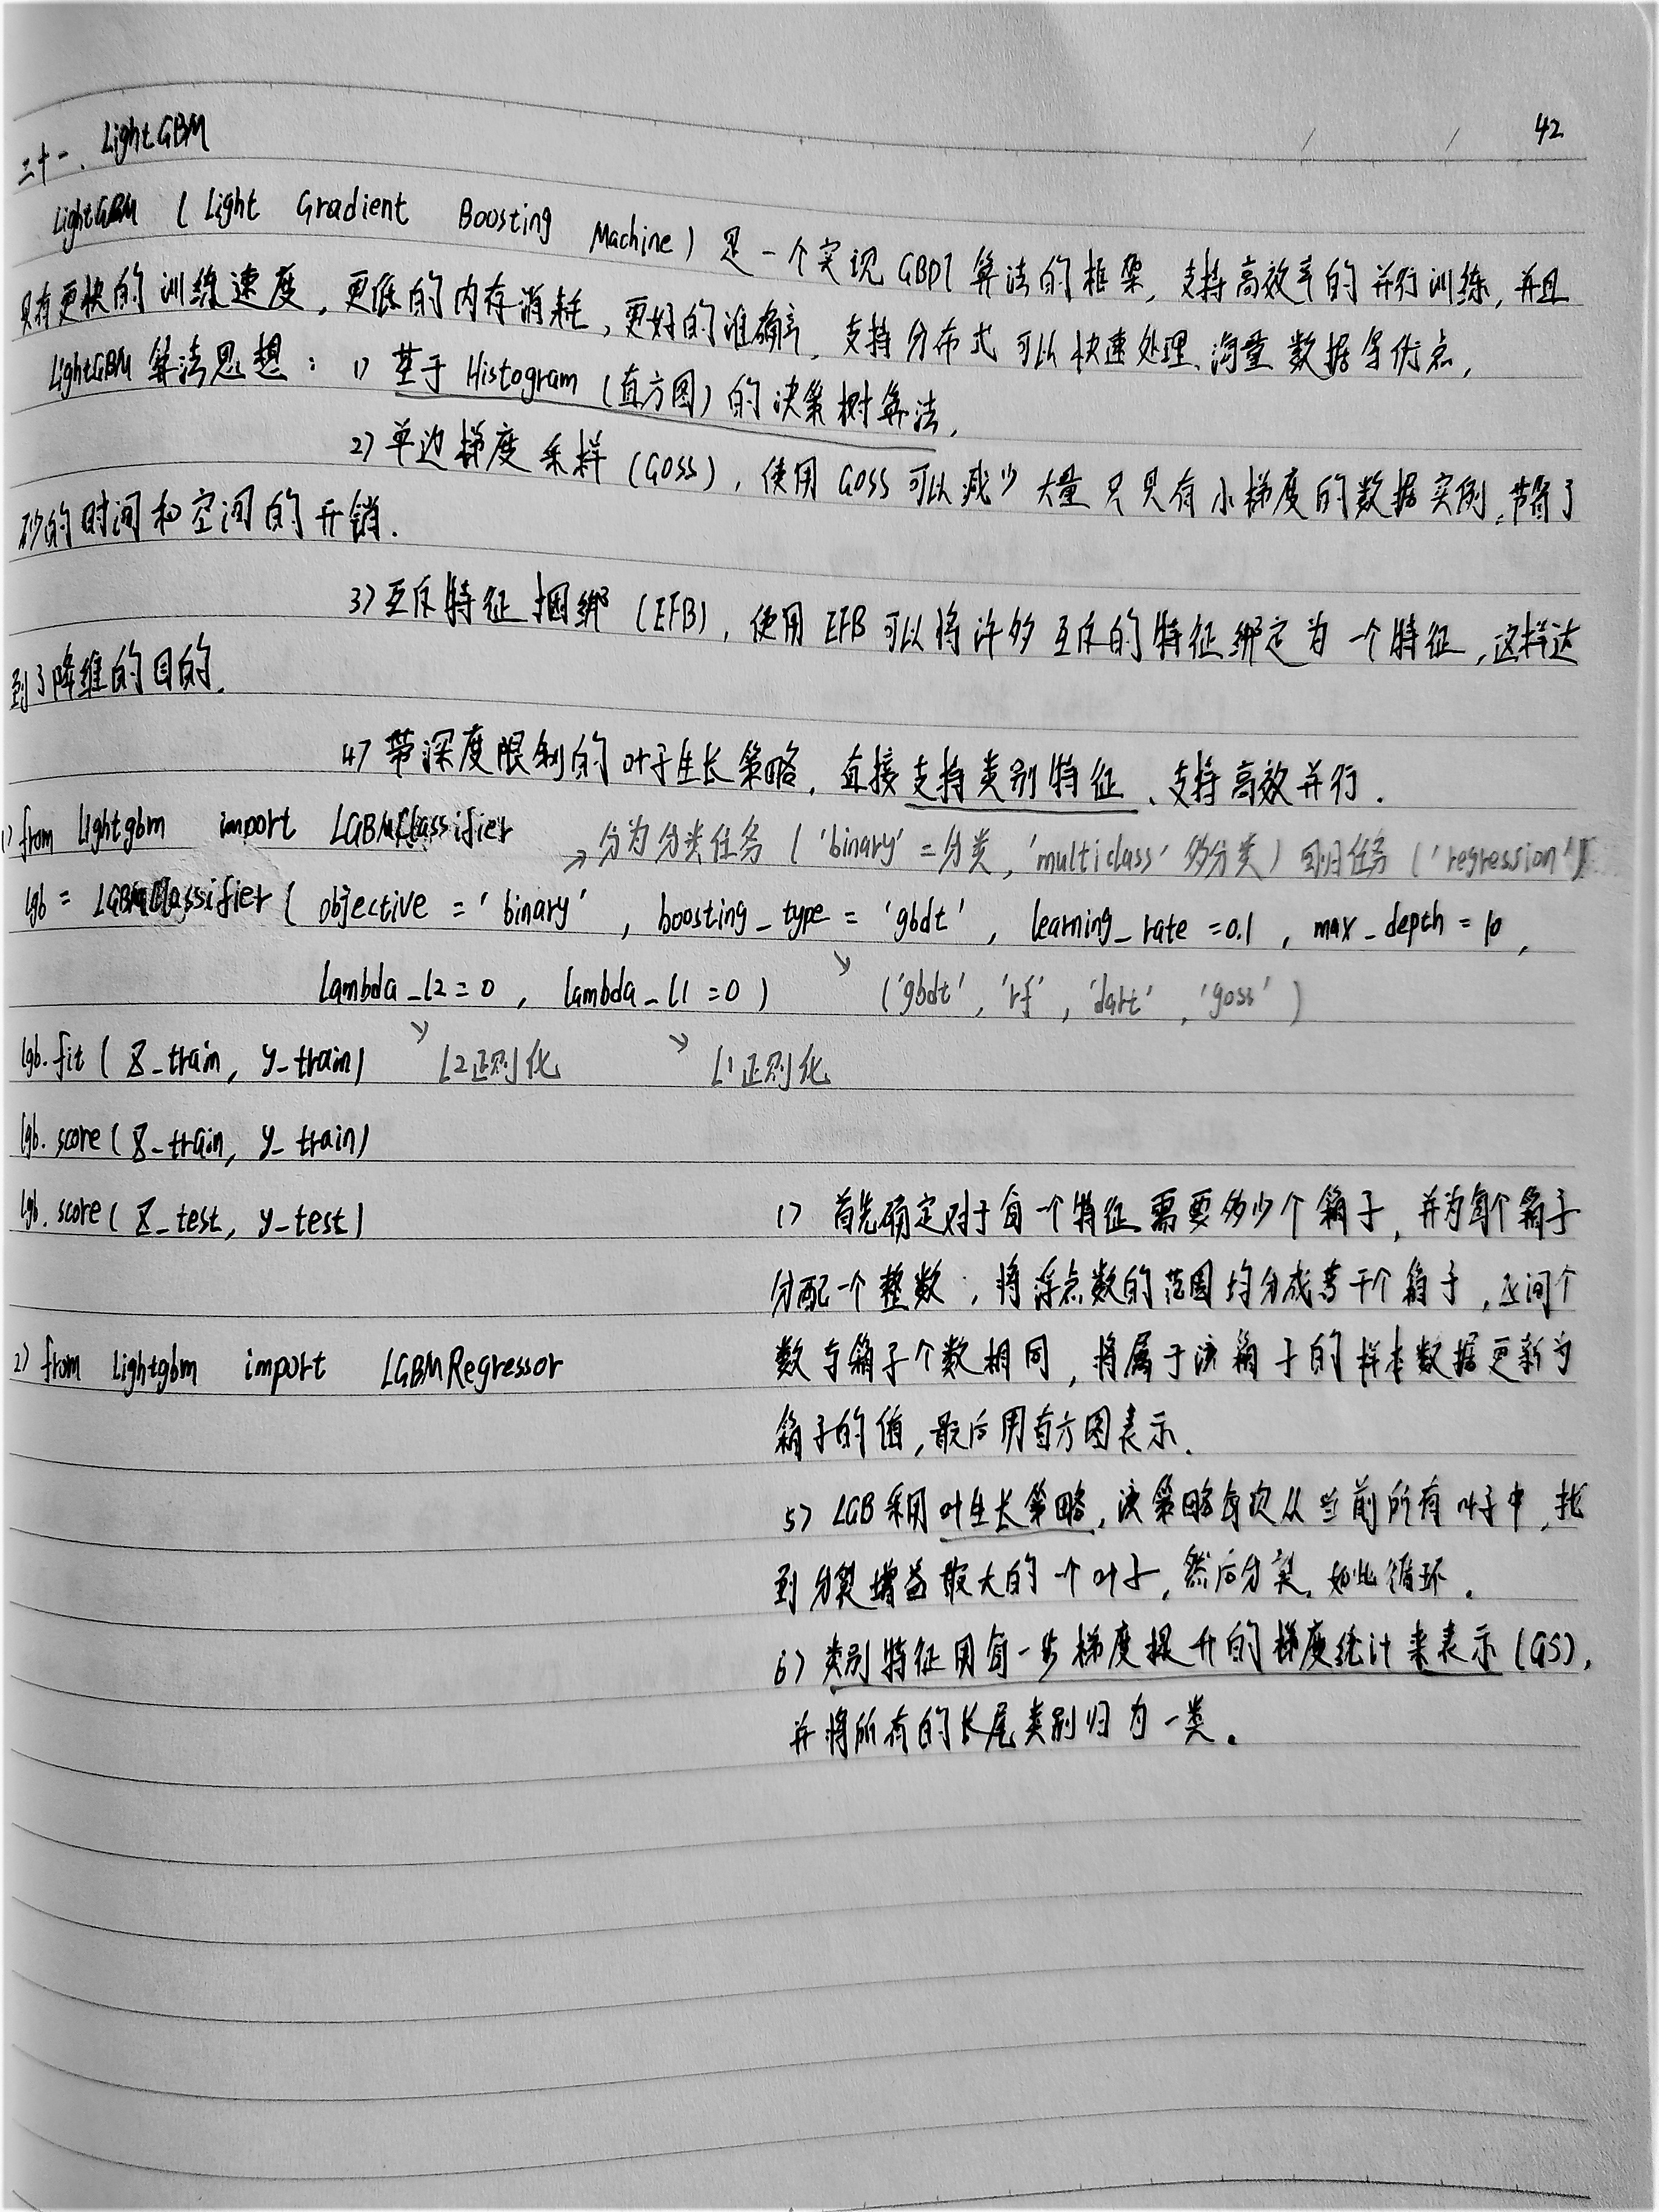 42
二十一、LightGBM
LightGBM (Light Gradient Boosting Machine) 是一个实现GBDT算法的框架,支持高效率的并行训练,并且
具有更快的训练速度,更低的内存消耗,更好的准确率,支持分布式可以快速处理海量数据等优点,
LightGBM算法思想:1) 基于Histogram(直方图)的决策树算法,
2) 单边梯度采样(GOSS),使用GOSS可以减少大量只具有小梯度的数据实例,节省了
的时间和空间的开销.
3) 互斥特征捆绑(EFB),使用EFB可以将许多互斥的特征绑定为一个特征,这样达
到了降维的目的.
4) 带深度限制的叶子生长策略,直接支持类别特征、支持高效并行.
1) from lightgbm import LGBMClassifier
→分为分类任务('binary'二分类,'multiclass'多分类)回归任务('regression')
lgb = LGBMClassifier( objective = 'binary', boosting_type = 'gbdt', learning_rate = 0.1, max_depth = 10,
lambda_l2 = 0, lambda_l1 = 0) ↘ ('gbdt', 'rf', 'dart', 'goss')
lgb.fit( X_train, y_train) ↘ L2正则化 ↘ L1正则化
lgb.score( X_train, y_train)
lgb.score( X_test, y_test)
2) from lightgbm import LGBMRegressor
1) 首先确定对于每一个特征需要多少个箱子,并为每个箱子
分配一个整数,将浮点数的范围均分成若干个箱子,区间个
数与箱子个数相同,将属于该箱子的样本数据更新为
箱子的值,最后用直方图表示.
5) LGB采用叶生长策略,该策略每次从当前所有叶子中,找
到分裂增益最大的一个叶子,然后分裂,如此循环.
6) 类别特征用每一步梯度提升的梯度统计来表示(GS),
并将所有的长尾类别归为一类。